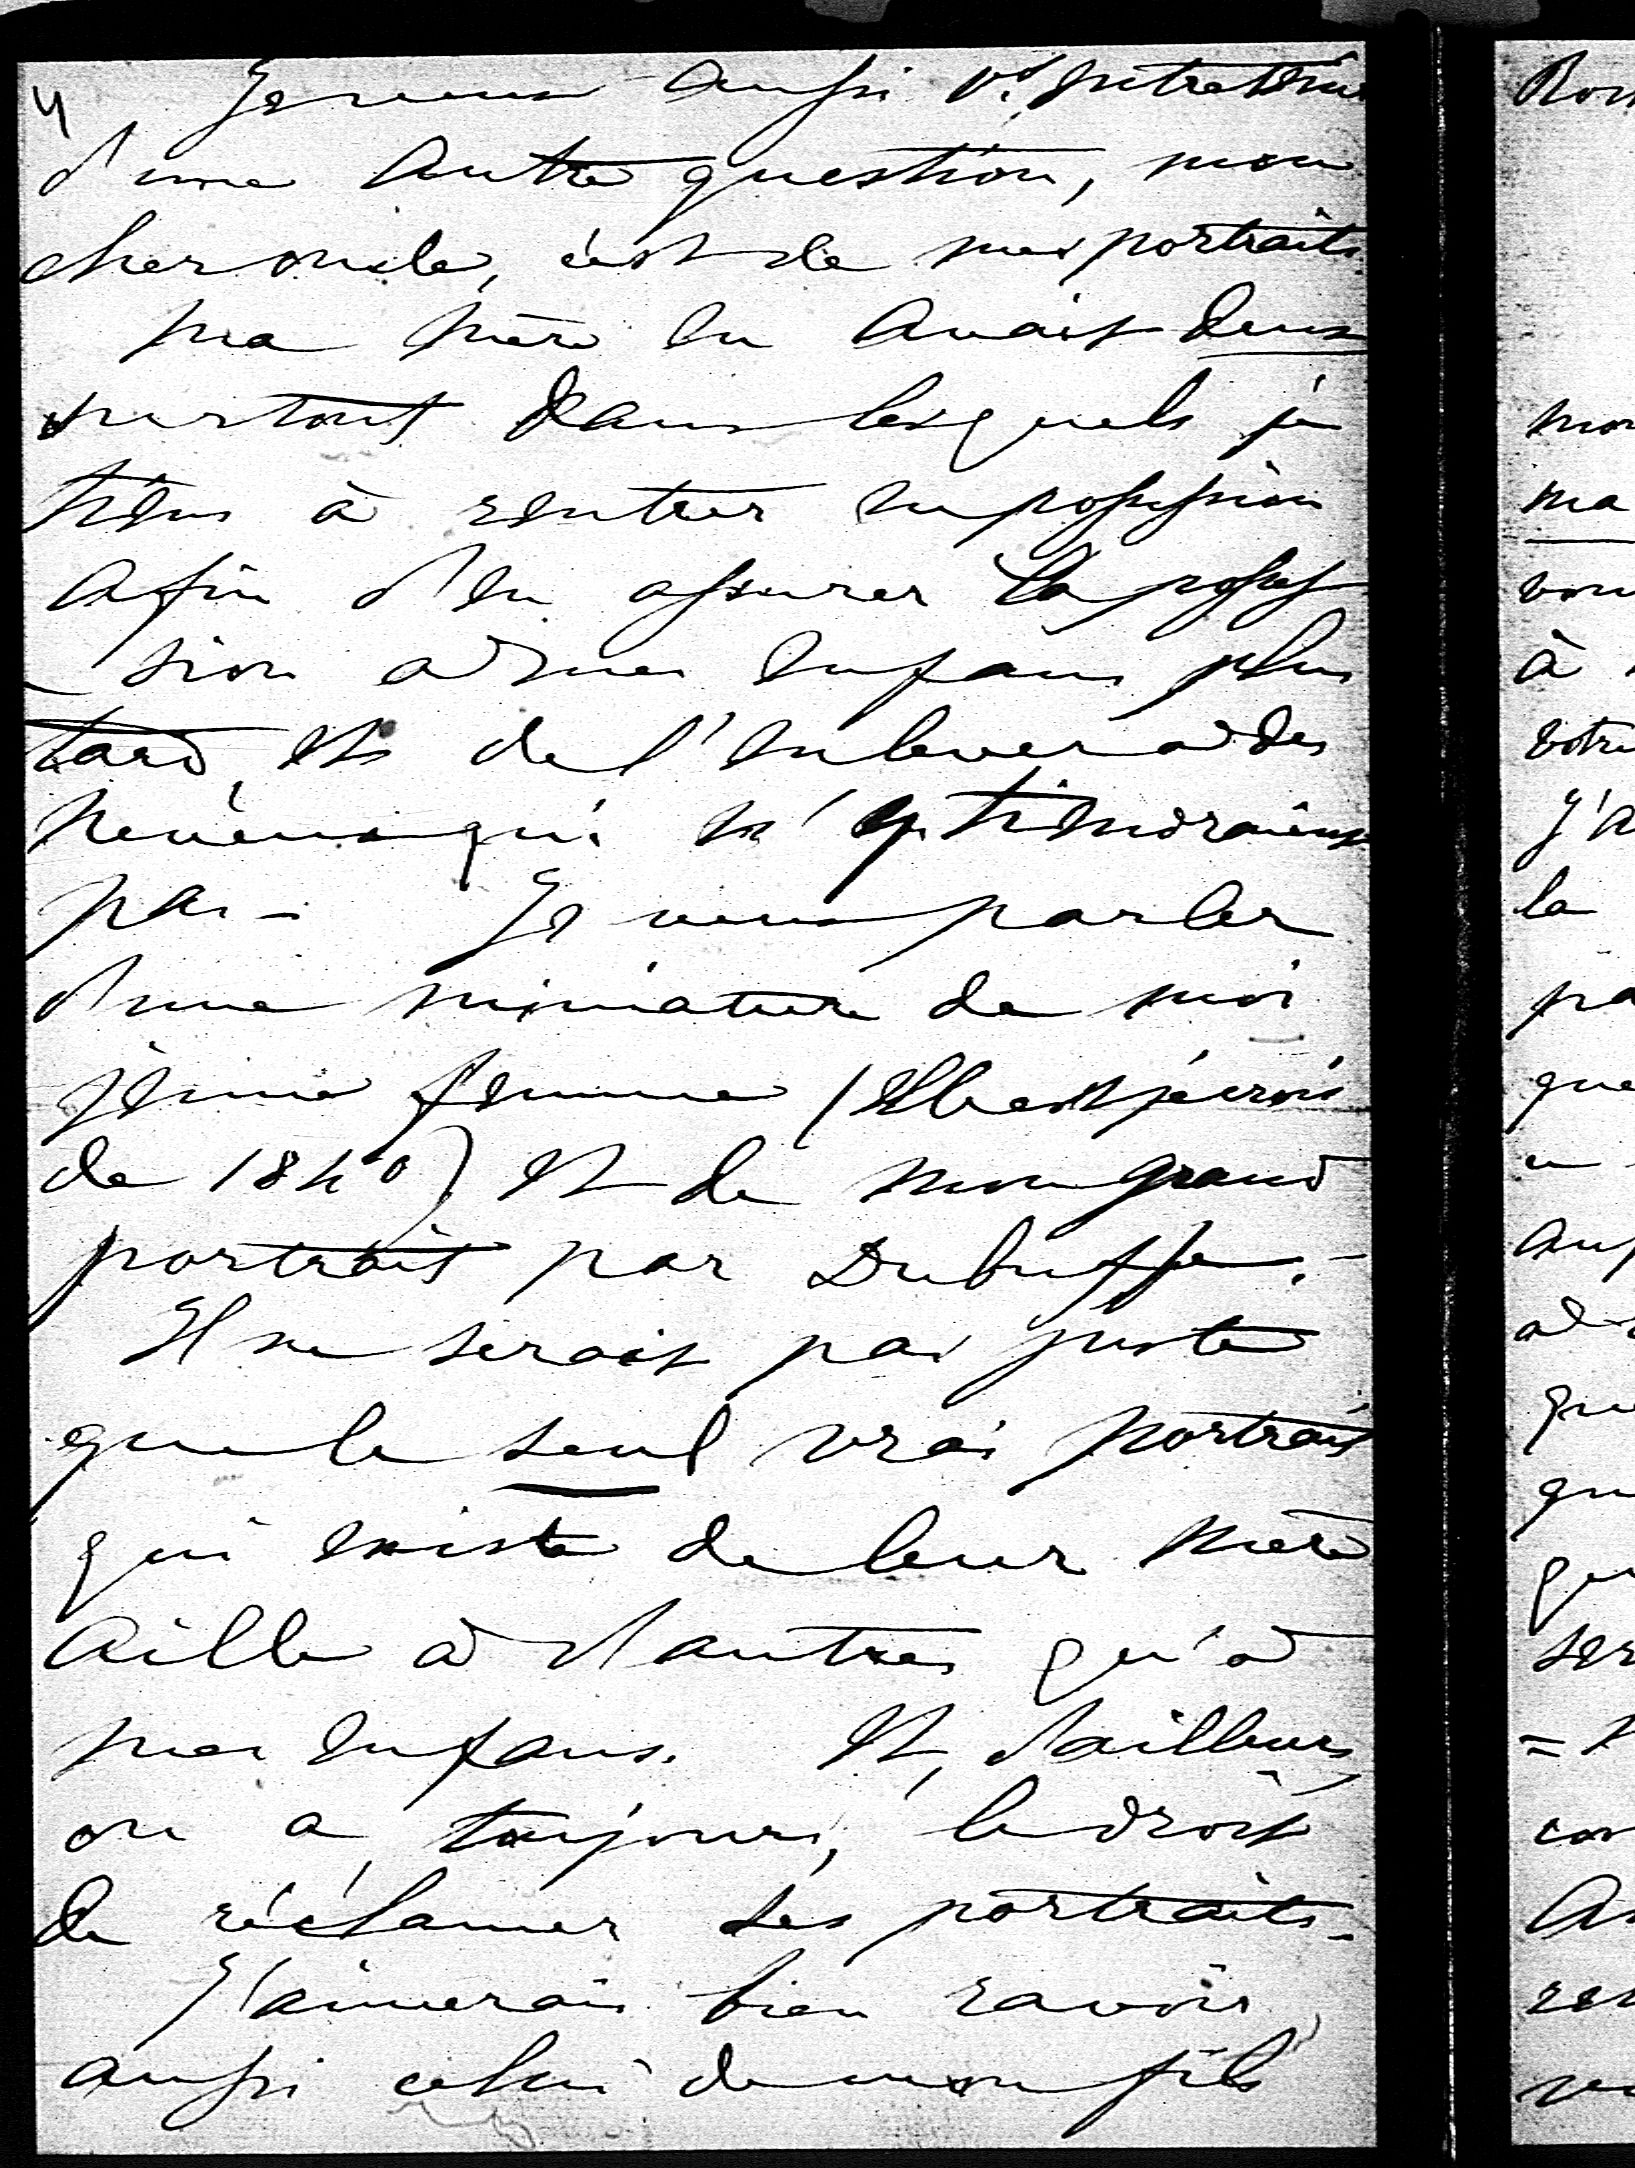 4 Je veux aussi vs entretenir
d'une autre question, mon
cher oncle, c'est de mes portraits.
Ma mère en avait deux
surtout dans lesquels je
tiens à rentrer en possession
afin d'en assurer la posses
- sion à mes enfans plus
tard, et de l'enlever à des
neveux qui n'y tiendraient
pas - Je veux parler
d'une miniature de moi
jeune femme (elle est je crois
de 1840) et de mon grand
portrait par Dubuffe. -
Il ne serait pas juste
que le seul vrai portrait
qui existe de leur mère
aille à d'autres qu'à
mes enfans. Et, d'ailleurs,
on a, toujours, le droit
de réclamer ses portraits -
J'aimerais bien ravoir
aussi celui de mon fils
Rom
mon
ma
vou
à
votre
J'a
la
pa
que
a
que
ser
=
con
A
ren